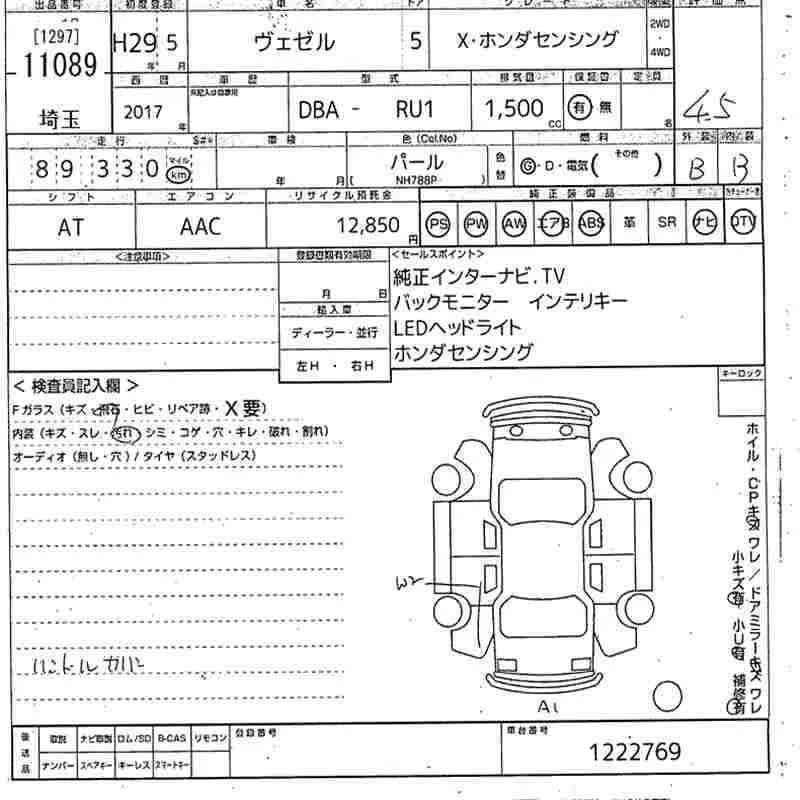 出品番号 初度登録 車名 ドア グレード 評価点
[1297] 11089 埼玉
H29 5 年 月
ヴェゼル 5 X・ホンダセンシング 2WD・4WD
西暦 車歴 型式 排気量 保証書 定員
2017年 DBA - RU1 1,500cc 有 無 名
4.5
走行 S#* 車検 色(Col.No) 燃料 外装 内装
89330 マイル km 年 月 パール ( NH788P ) 色替 G・D・電気( その他 ) B B
シフト エアコン リサイクル預託金 純正装備品
AT AAC 12,850円 PS PW AW エアB ABS 革 SR ナビ DTV
<注意事項> 登録書類有効期限 <セールスポイント>
月 日
純正インターナビ.TV
バックモニター インテリキー
輸入車
LEDヘッドライト
ディーラー・並行
ホンダセンシング
左H ・ 右H
キーロック
< 検査員記入欄 >
Fガラス(キズ・飛石・ヒビ・リペア跡・X要)
内装(キズ・スレ・汚れ・シミ・コゲ・穴・キレ・破れ・割れ)
オーディオ(無し・穴)/タイヤ(スタッドレス)
ホイル・CPキズワレ/ドアミラーキズワレ
小キズ有 小U有 補修有
W2
ハンドルカバー
A1
後送品 取説 ナビ取説 ロム/SD B-CAS リモコン 登録番号 車台番号
ナンバー スペアキー キーレス スマートキー
1222769